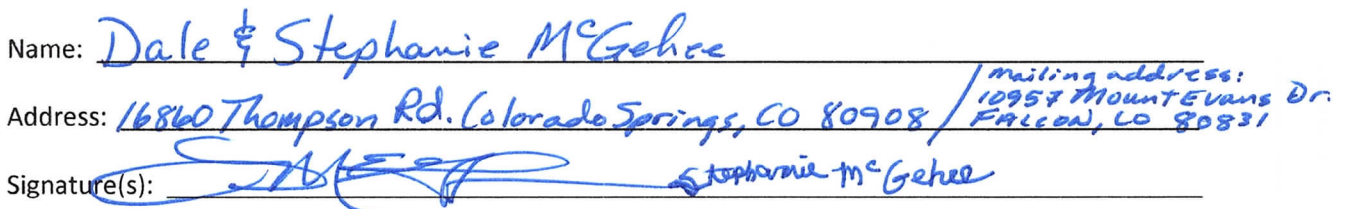 Name: Dale & Stephanie McGehee
Address: 16860 Thompson Rd. Colorado Springs, CO 80908 /
mailing address:
10957 Mount Evans Dr.
FALCON, CO 80831
Signature(s): Stephanie McGehee